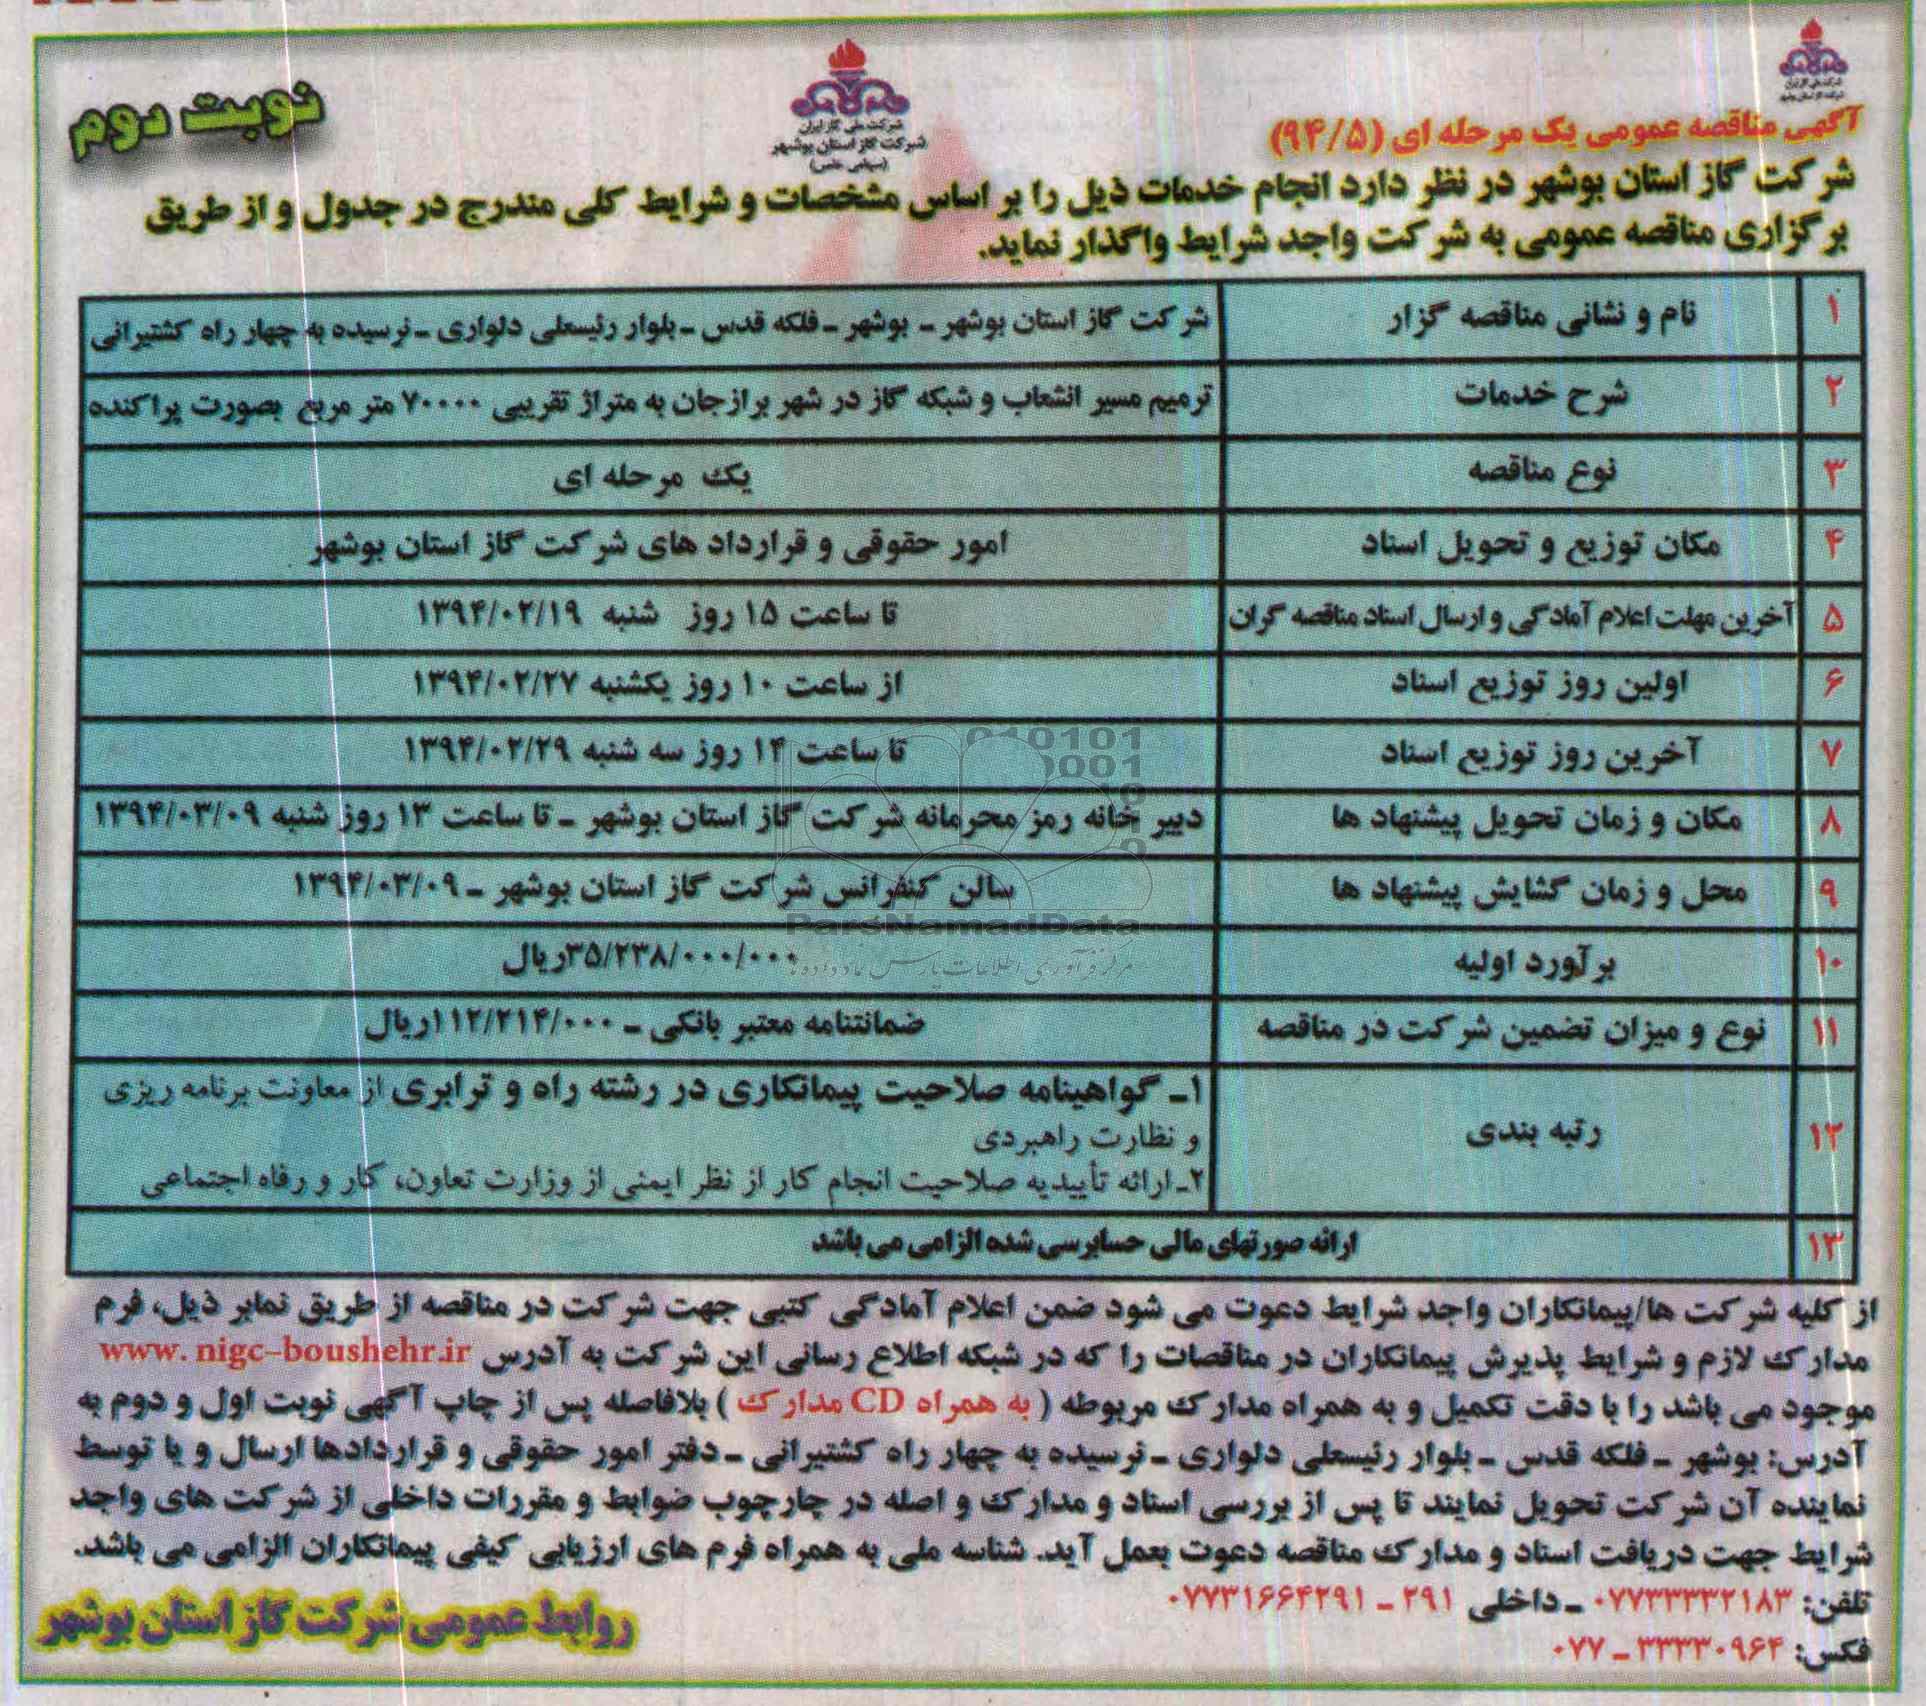 شرکت ملی گاز ایران
شرکت گاز استان بوشهر
شرکت ملی گاز ایران
شرکت گاز استان بوشهر
(سهامی خاص)
نوبت دوم
آگهی مناقصه عمومی یک مرحله ای (۹۴/۵)
شرکت گاز استان بوشهر در نظر دارد انجام خدمات ذیل را بر اساس مشخصات و شرایط کلی مندرج در جدول و از طریق
برگزاری مناقصه عمومی به شرکت واجد شرایط واگذار نماید.
۱ نام و نشانی مناقصه گزار شرکت گاز استان بوشهر - بوشهر - فلکه قدس - بلوار رئیسعلی دلواری - نرسیده به چهار راه کشتیرانی
۲ شرح خدمات ترمیم مسیر انشعاب و شبکه گاز در شهر برازجان به متراژ تقریبی ۷۰۰۰۰ متر مربع بصورت پراکنده
۳ نوع مناقصه یک مرحله ای
۴ مکان توزیع و تحویل اسناد امور حقوقی و قرارداد های شرکت گاز استان بوشهر
۵ آخرین مهلت اعلام آمادگی و ارسال اسناد مناقصه گران تا ساعت ۱۵ روز شنبه ۱۳۹۴/۰۲/۱۹
۶ اولین روز توزیع اسناد از ساعت ۱۰ روز یکشنبه ۱۳۹۴/۰۲/۲۷
۷ آخرین روز توزیع اسناد تا ساعت ۱۴ روز سه شنبه ۱۳۹۴/۰۲/۲۹
۸ مکان و زمان تحویل پیشنهاد ها دبیر خانه رمز محرمانه شرکت گاز استان بوشهر - تا ساعت ۱۳ روز شنبه ۱۳۹۴/۰۳/۰۹
۹ محل و زمان گشایش پیشنهاد ها سالن کنفرانس شرکت گاز استان بوشهر - ۱۳۹۴/۰۳/۰۹
ParsNamadData
مرکز فرآوری اطلاعات پارس نماد داده ها
۱۰ برآورد اولیه ۳۵/۲۳۸/۰۰۰/۰۰۰ریال
۱۱ نوع و میزان تضمین شرکت در مناقصه ضمانتنامه معتبر بانکی - ۱۱۲/۲۱۴/۰۰۰ریال
۱۲ رتبه بندی ۱- گواهینامه صلاحیت پیمانکاری در رشته راه و ترابری از معاونت برنامه ریزی
و نظارت راهبردی
۲- ارائه تأییدیه صلاحیت انجام کار از نظر ایمنی از وزارت تعاون، کار و رفاه اجتماعی
۱۳ ارائه صورتهای مالی حسابرسی شده الزامی می باشد
از کلیه شرکت ها/پیمانکاران واجد شرایط دعوت می شود ضمن اعلام آمادگی کتبی جهت شرکت در مناقصه از طریق نمابر ذیل، فرم
مدارک لازم و شرایط پذیرش پیمانکاران در مناقصات را که در شبکه اطلاع رسانی این شرکت به آدرس www. nigc-boushehr.ir
موجود می باشد را با دقت تکمیل و به همراه مدارک مربوطه ( به همراه CD مدارک ) بلافاصله پس از چاپ آگهی نوبت اول و دوم به
آدرس: بوشهر - فلکه قدس - بلوار رئیسعلی دلواری - نرسیده به چهار راه کشتیرانی - دفتر امور حقوقی و قراردادها ارسال و یا توسط
نماینده آن شرکت تحویل نمایند تا پس از بررسی اسناد و مدارک و اصله در چارچوب ضوابط و مقررات داخلی از شرکت های واجد
شرایط جهت دریافت اسناد و مدارک مناقصه دعوت بعمل آید. شناسه ملی به همراه فرم های ارزیابی کیفی پیمانکاران الزامی می باشد.
تلفن: ۰۷۷۳۳۳۳۲۱۸۳ - داخلی ۲۹۱ - ۰۷۷۳۱۶۶۴۲۹۱
فکس: ۳۳۳۳۰۹۶۴ - ۰۷۷
روابط عمومی شرکت گاز استان بوشهر